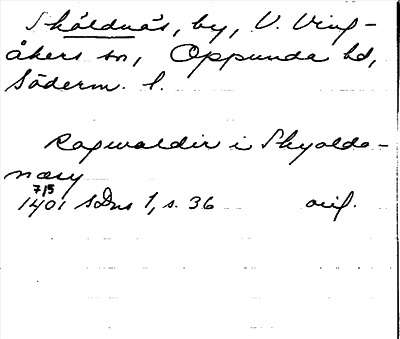 Sköldnäs, by, V. Ving-
åkers sn, Oppunda hd,
Söderm. l.
Ragwaldir i Skyolda-
næsy
7/5
1401 SDns 1, s. 36 orig.